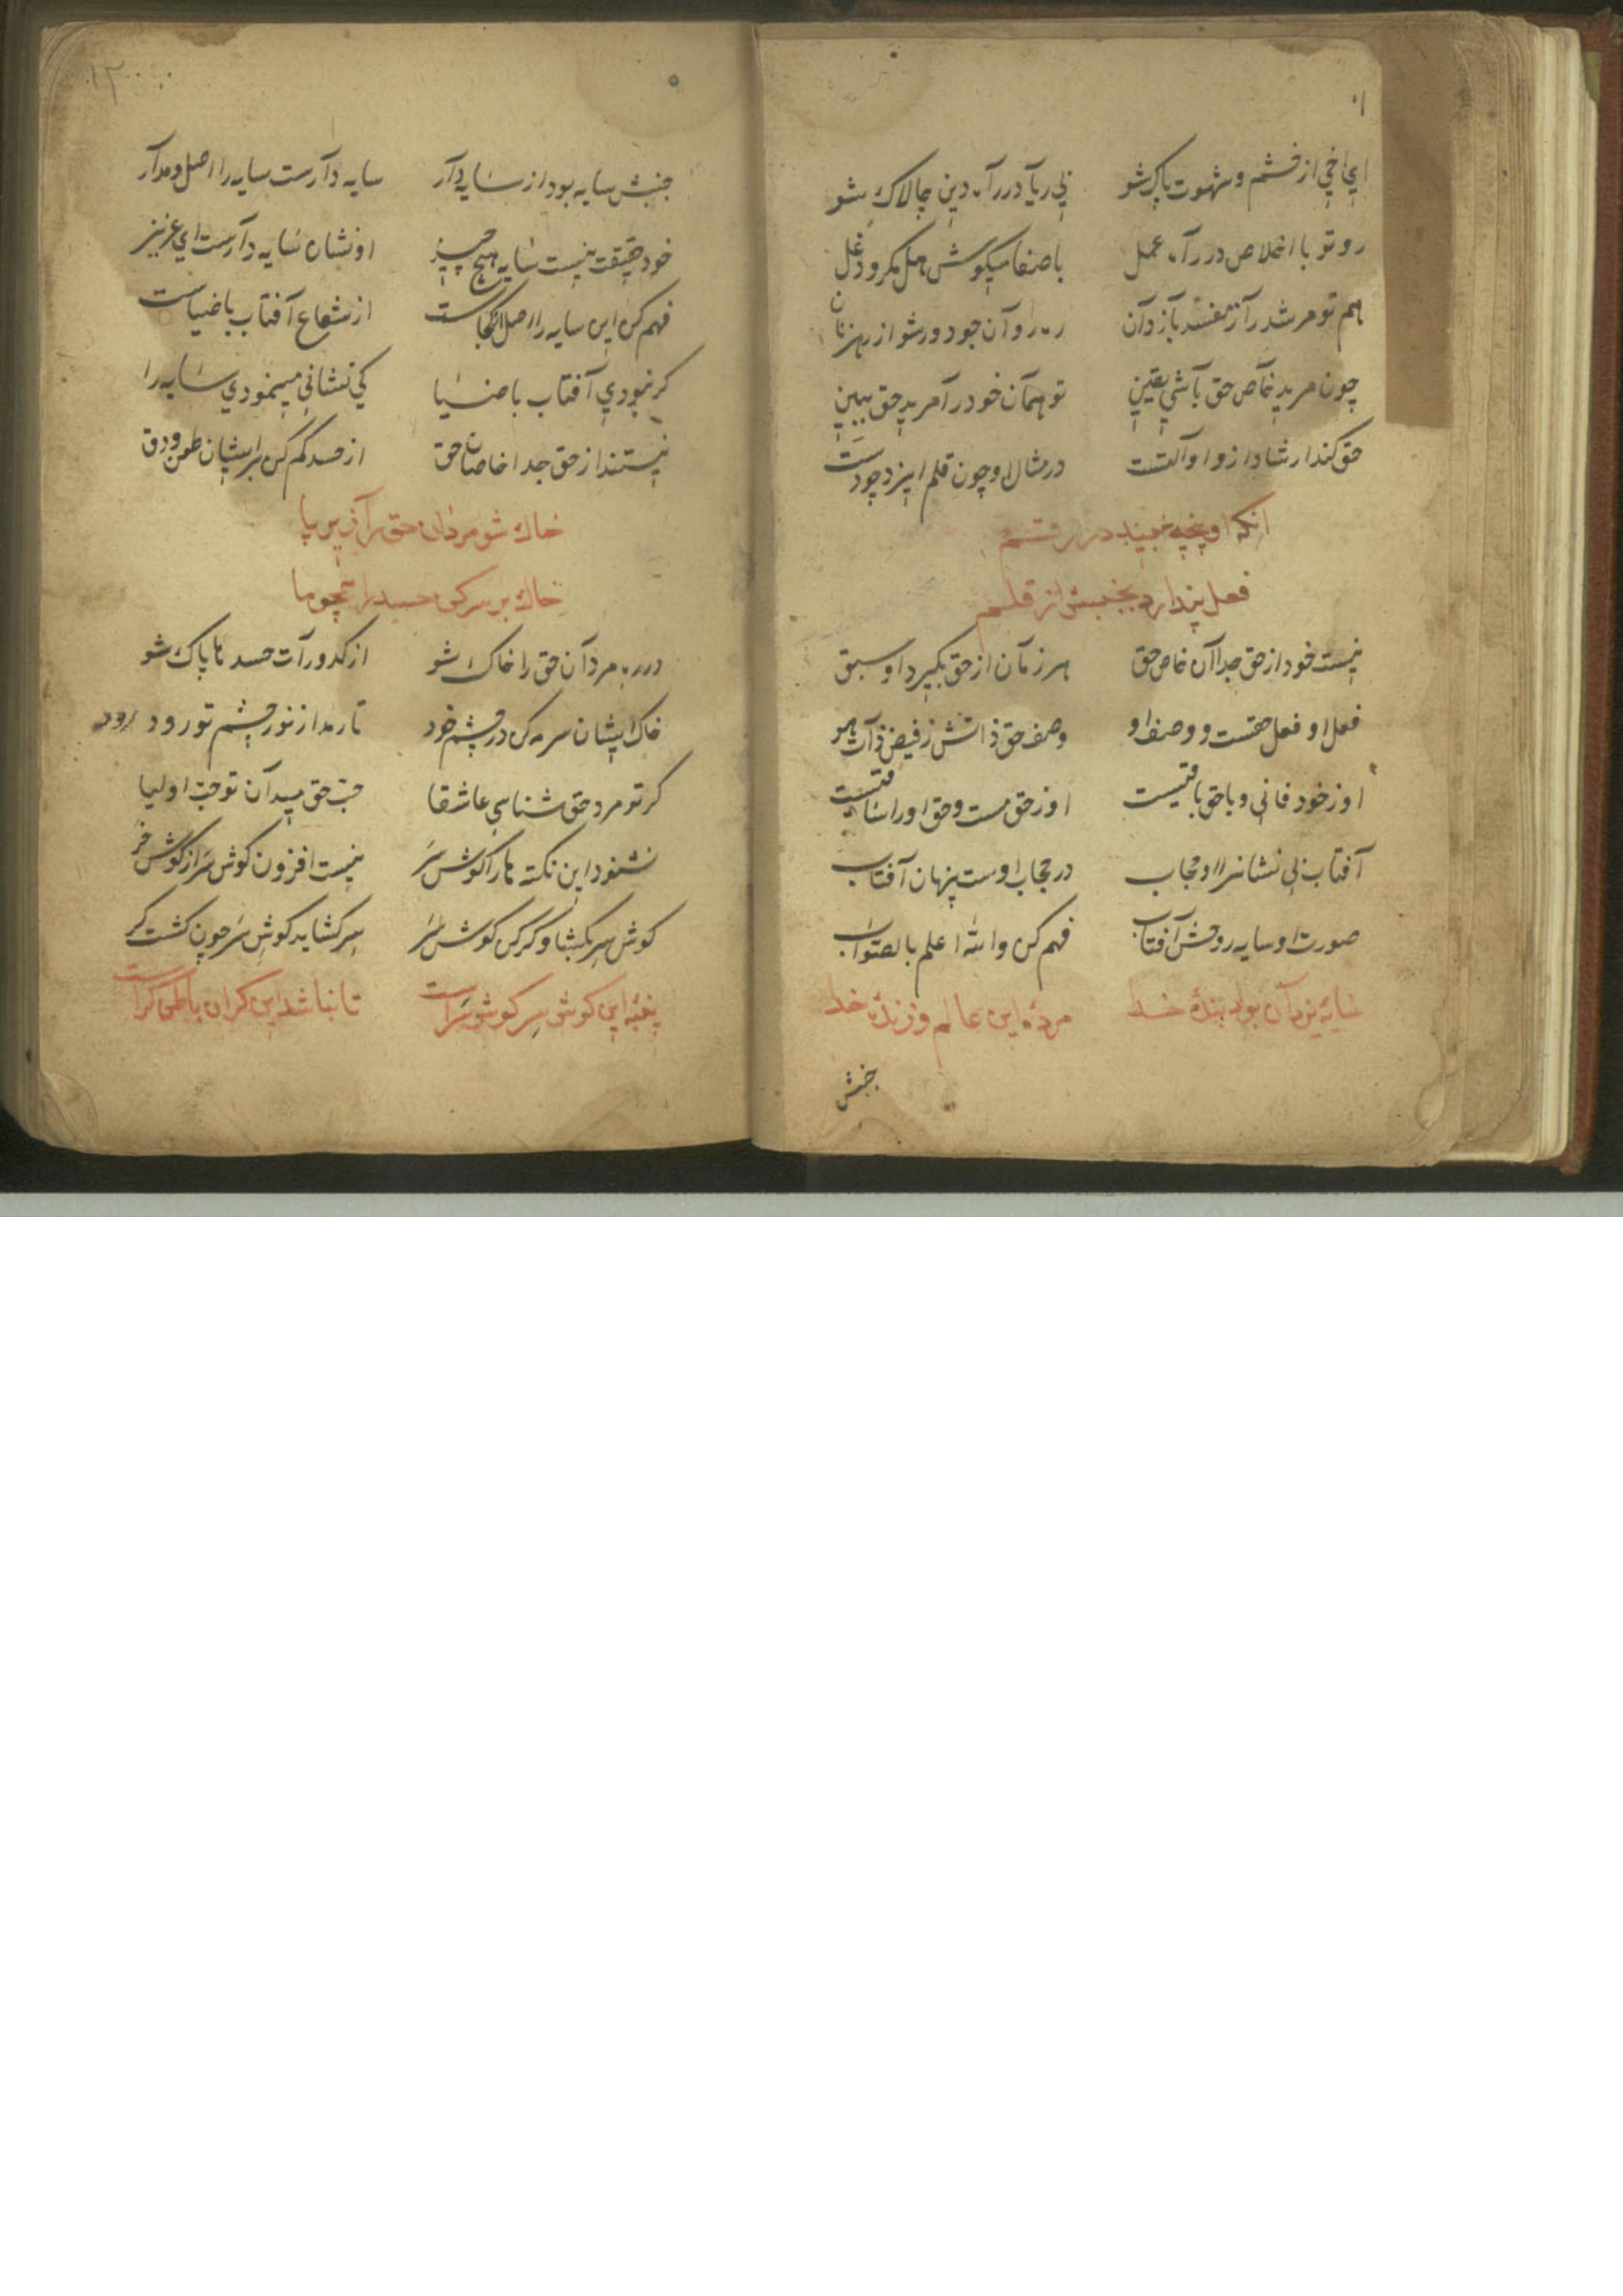 ای اخی از خشم و شهوت پاک شو بی ریا در راه دین چالاک شو
رو تو با اخلاص در راه عمل با صفا میکوش بهل مکر و دغل
هم تو مرشد را ز مفسد باز دان ره روان جو دور شو از رهزنان
چون مرید خاص حق باشی یقین تو همان خود را مرید حق ببین
حق کند ارشاد از او او آلتست در مثال او چون قلم ایزد چو دست
آنکه او پنجه نبیند در رقم
فعل پندارد بجنبش از قلم
نیست خود از حق جدا آن خاص حق هر زمان از حق بگیرد او سبق
فعل او فعل حقست و وصف او وصف حق ذاتش ز فیض ذات هو
او ز خود فانی و با حق باقیست او ز حق مست و حق او را ساقیست
آفتاب بی نشانرا او حجاب در حجاب اوست پنهان آفتاب
صورت او سایه روحش آفتاب فهم کن والله اعلم بالصواب
سایه یزدان بود بنده خدا مرده این عالم و زنده خدا
جنبش
۱۲
جنبش سایه بود از سایه دار سایه دارست سایه را اصل و مدار
خود حقیقت نیست سایه هیچ چیز او نشان سایه دارست ای عزیز
فهم کن این سایه را اصل از کجاست از شعاع آفتاب با ضیاست
کر نبودی آفتاب با ضیا کی نشانی مینمودی سایه را
نیستند از حق جدا خاصان حق از حسد کم کن بر ایشان طعن و دق
خاک شو مردان حق را زیر پا
خاک بر سر کن حسد را همچو ما
در ره مردان حق را خاک شو از کدورات حسدها پاک شو
خاک ایشان سرمه کن در چشم خود تا رمد از نور چشم تو رود
کر تو مرد حق شناسی عاشقا حب حق میدان تو حب اولیا
نشنود این نکته ها را کوش سر نیست افزون کوش سر از کوش خر
کوش سر بکشا و کر کن کوش سر سر کشاید کوش سر چون کشت کر
پنبه این کوش سر کوش سر است تا نباشد این کر آن باطن کر است